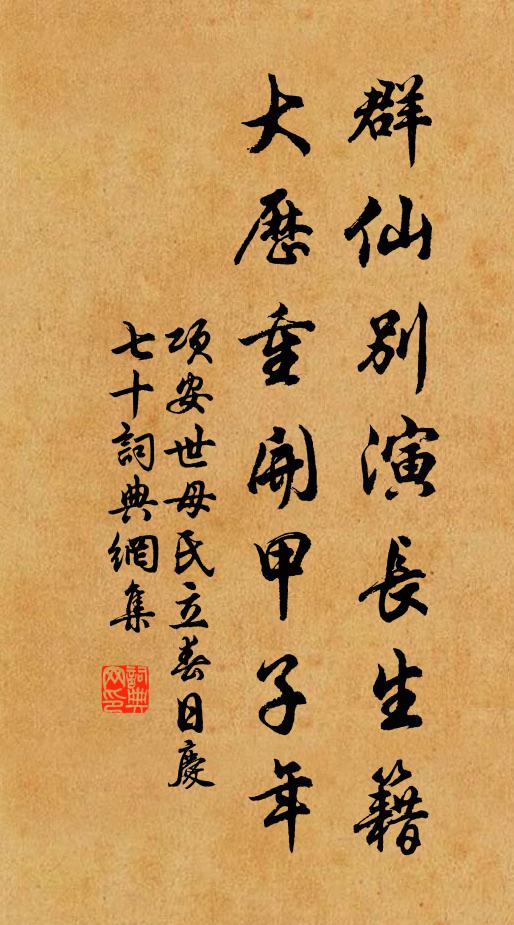 群仙別演長生籍
大歷重開甲子年
項安世母氏立春日慶
七十詞典網集
詞典
网印